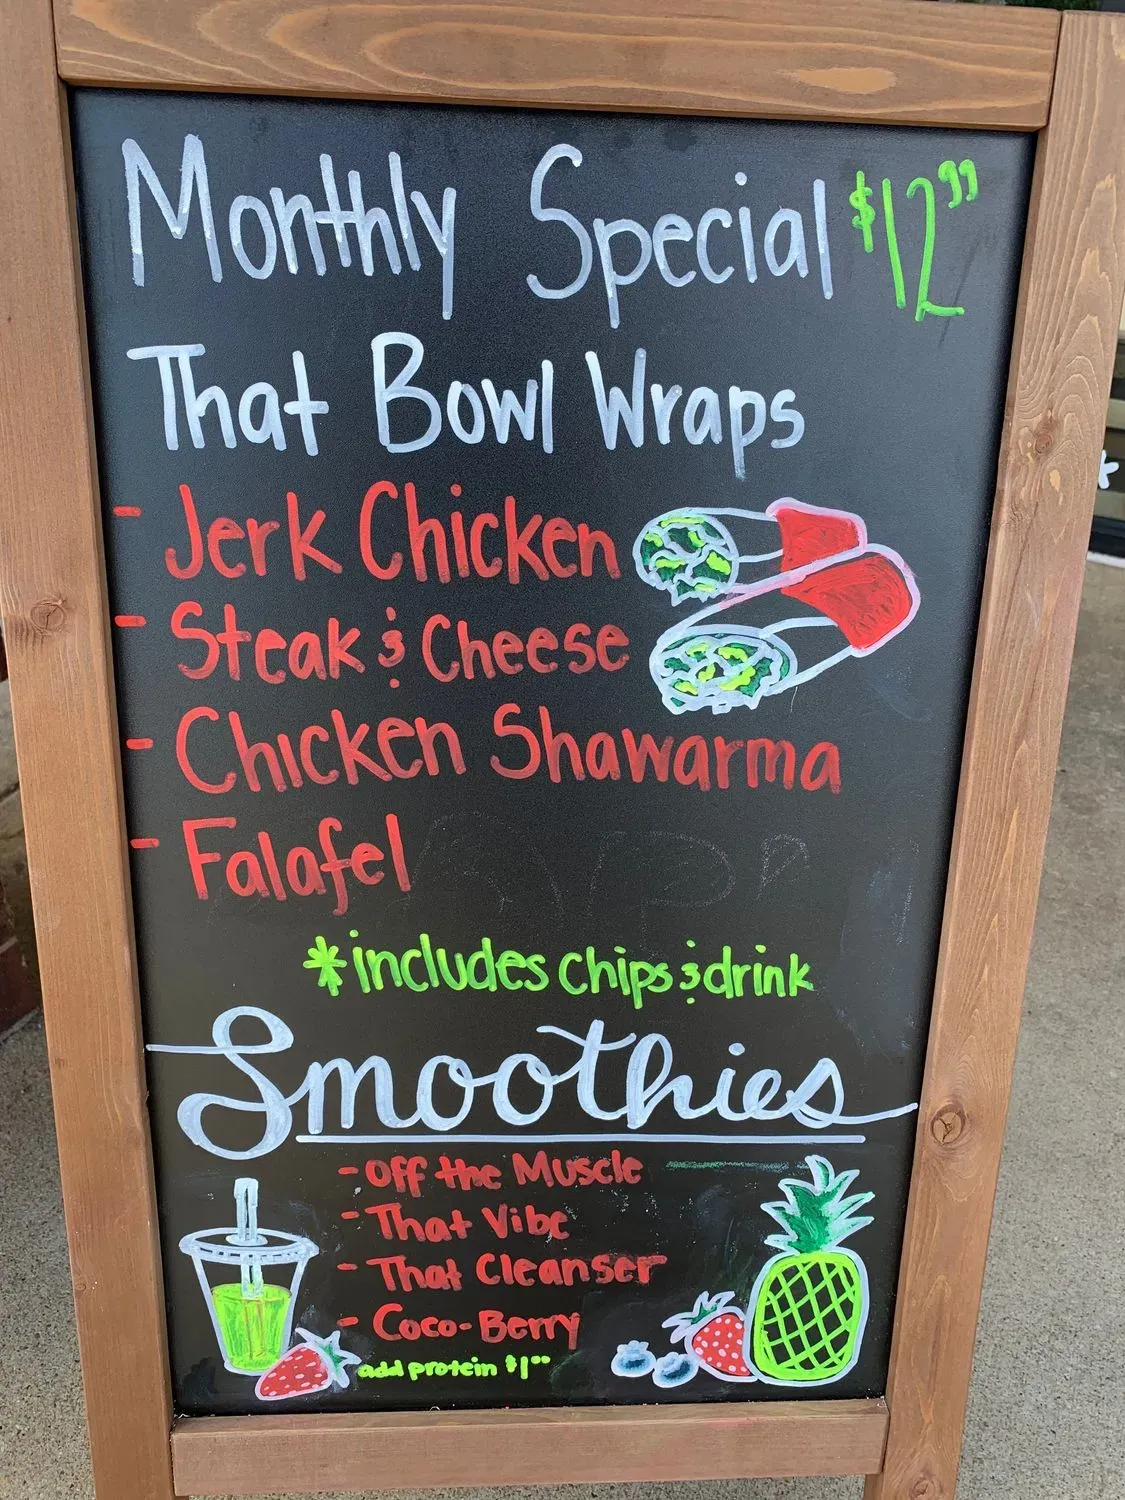 Monthly Special $12.99
That Bowl Wraps
- Jerk Chicken
- Steak & Cheese
- Chicken Shawarma
- Falafel
*includes chips & drink
Smoothies
- Off the Muscle
- That Vibe
- That Cleanser
- Coco-Berry
add protein $1.00